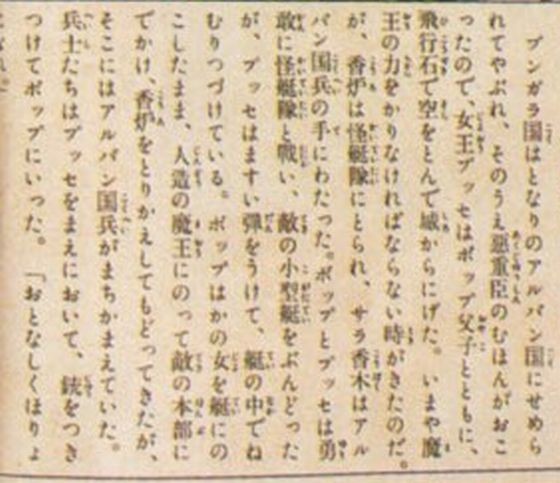 ブンガラ国はとなりのアルパン国にせめら
れてやぶれ、そのうえ惡重臣のむほんがおこ
ったので、女王ブッセはポップ父子とともに、
飛行石で空をとんで城からにげた。いまや魔
王の力をかりなければならない時がきたのだ。
が、香炉は怪艇隊にとられ、サラ香木はアル
パン国兵の手にわたった。ポップとブッセは勇
敢に怪艇隊と戦い、敵の小型艇をぶんどった
が、ブッセはますい弾をうけて、艇の中でね
むりつづけている。ポップはかの女を艇にの
こしたまま、人造の魔王にのって敵の本部に
でかけ、香炉をとりかえしてもどってきたが、
そこにはアルパン国兵がまちかまえていた。
兵士たちはブッセをまえにおいて、銃をつき
つけてポップにいった。「おとなしくほりょ